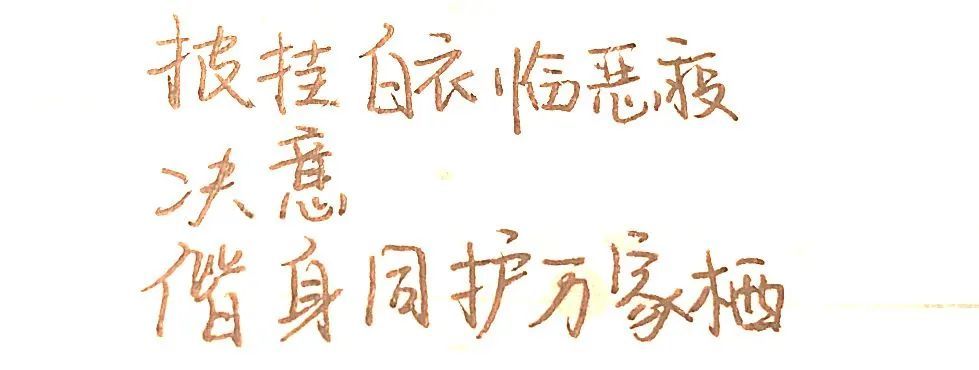 披挂白衣临恶疫
决意
偕身同护万家栖